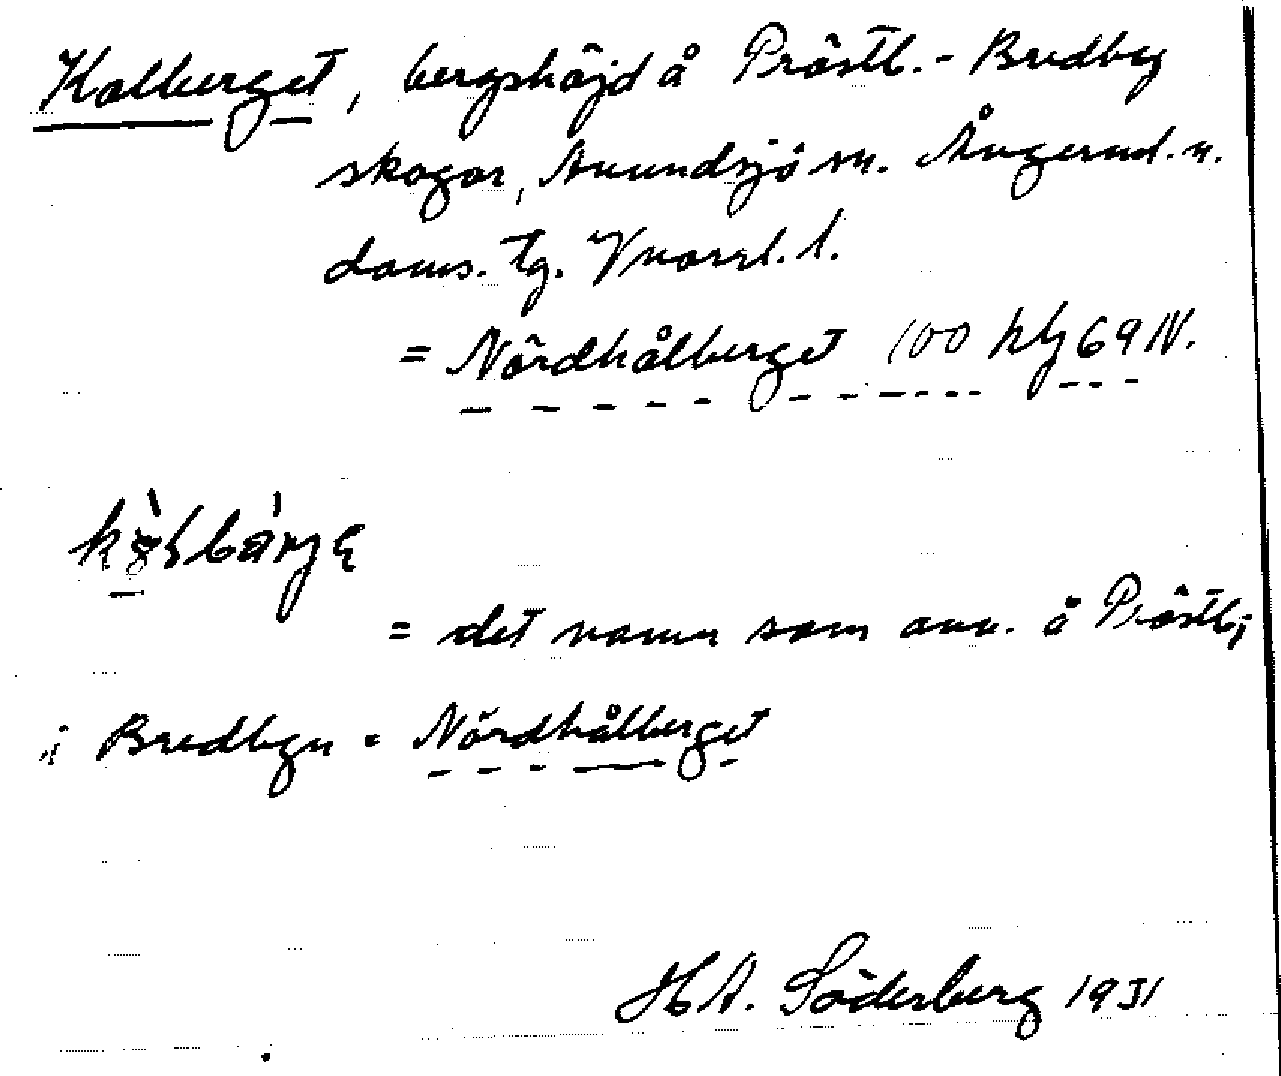 Kalberget, bergshöjd å Prästb.-Bredby
skogar, Anundsjö sn. Ångerml. n.
doms. tg. Vnorrl. l.
= Nördhålberget 100 hbj 69 N.
= det namn som anv. å Prästb;
i Bredbyn = Nördhålberget
H A. Söderberg 1931